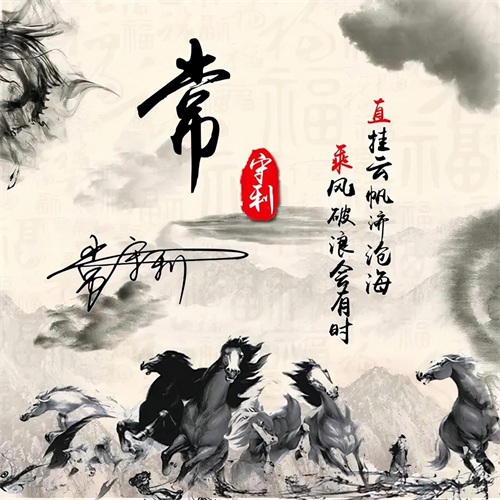 常
守利
常守利
直挂云帆济沧海
乘风破浪会有时